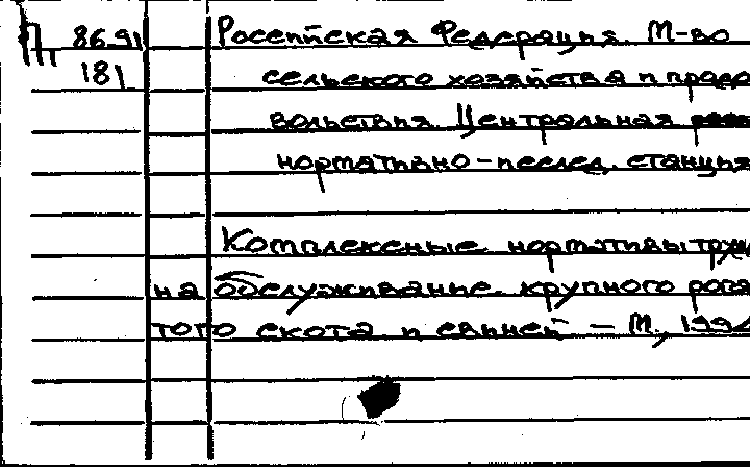 П 86.91
181
Российская Федерация. М-во
сельского хозяйства и продо
вольствия. Центральная
нормативно-исслед. станция
Комплексные нормативы труд
на обслуживание крупного рога
того скота и свиней - М, 199